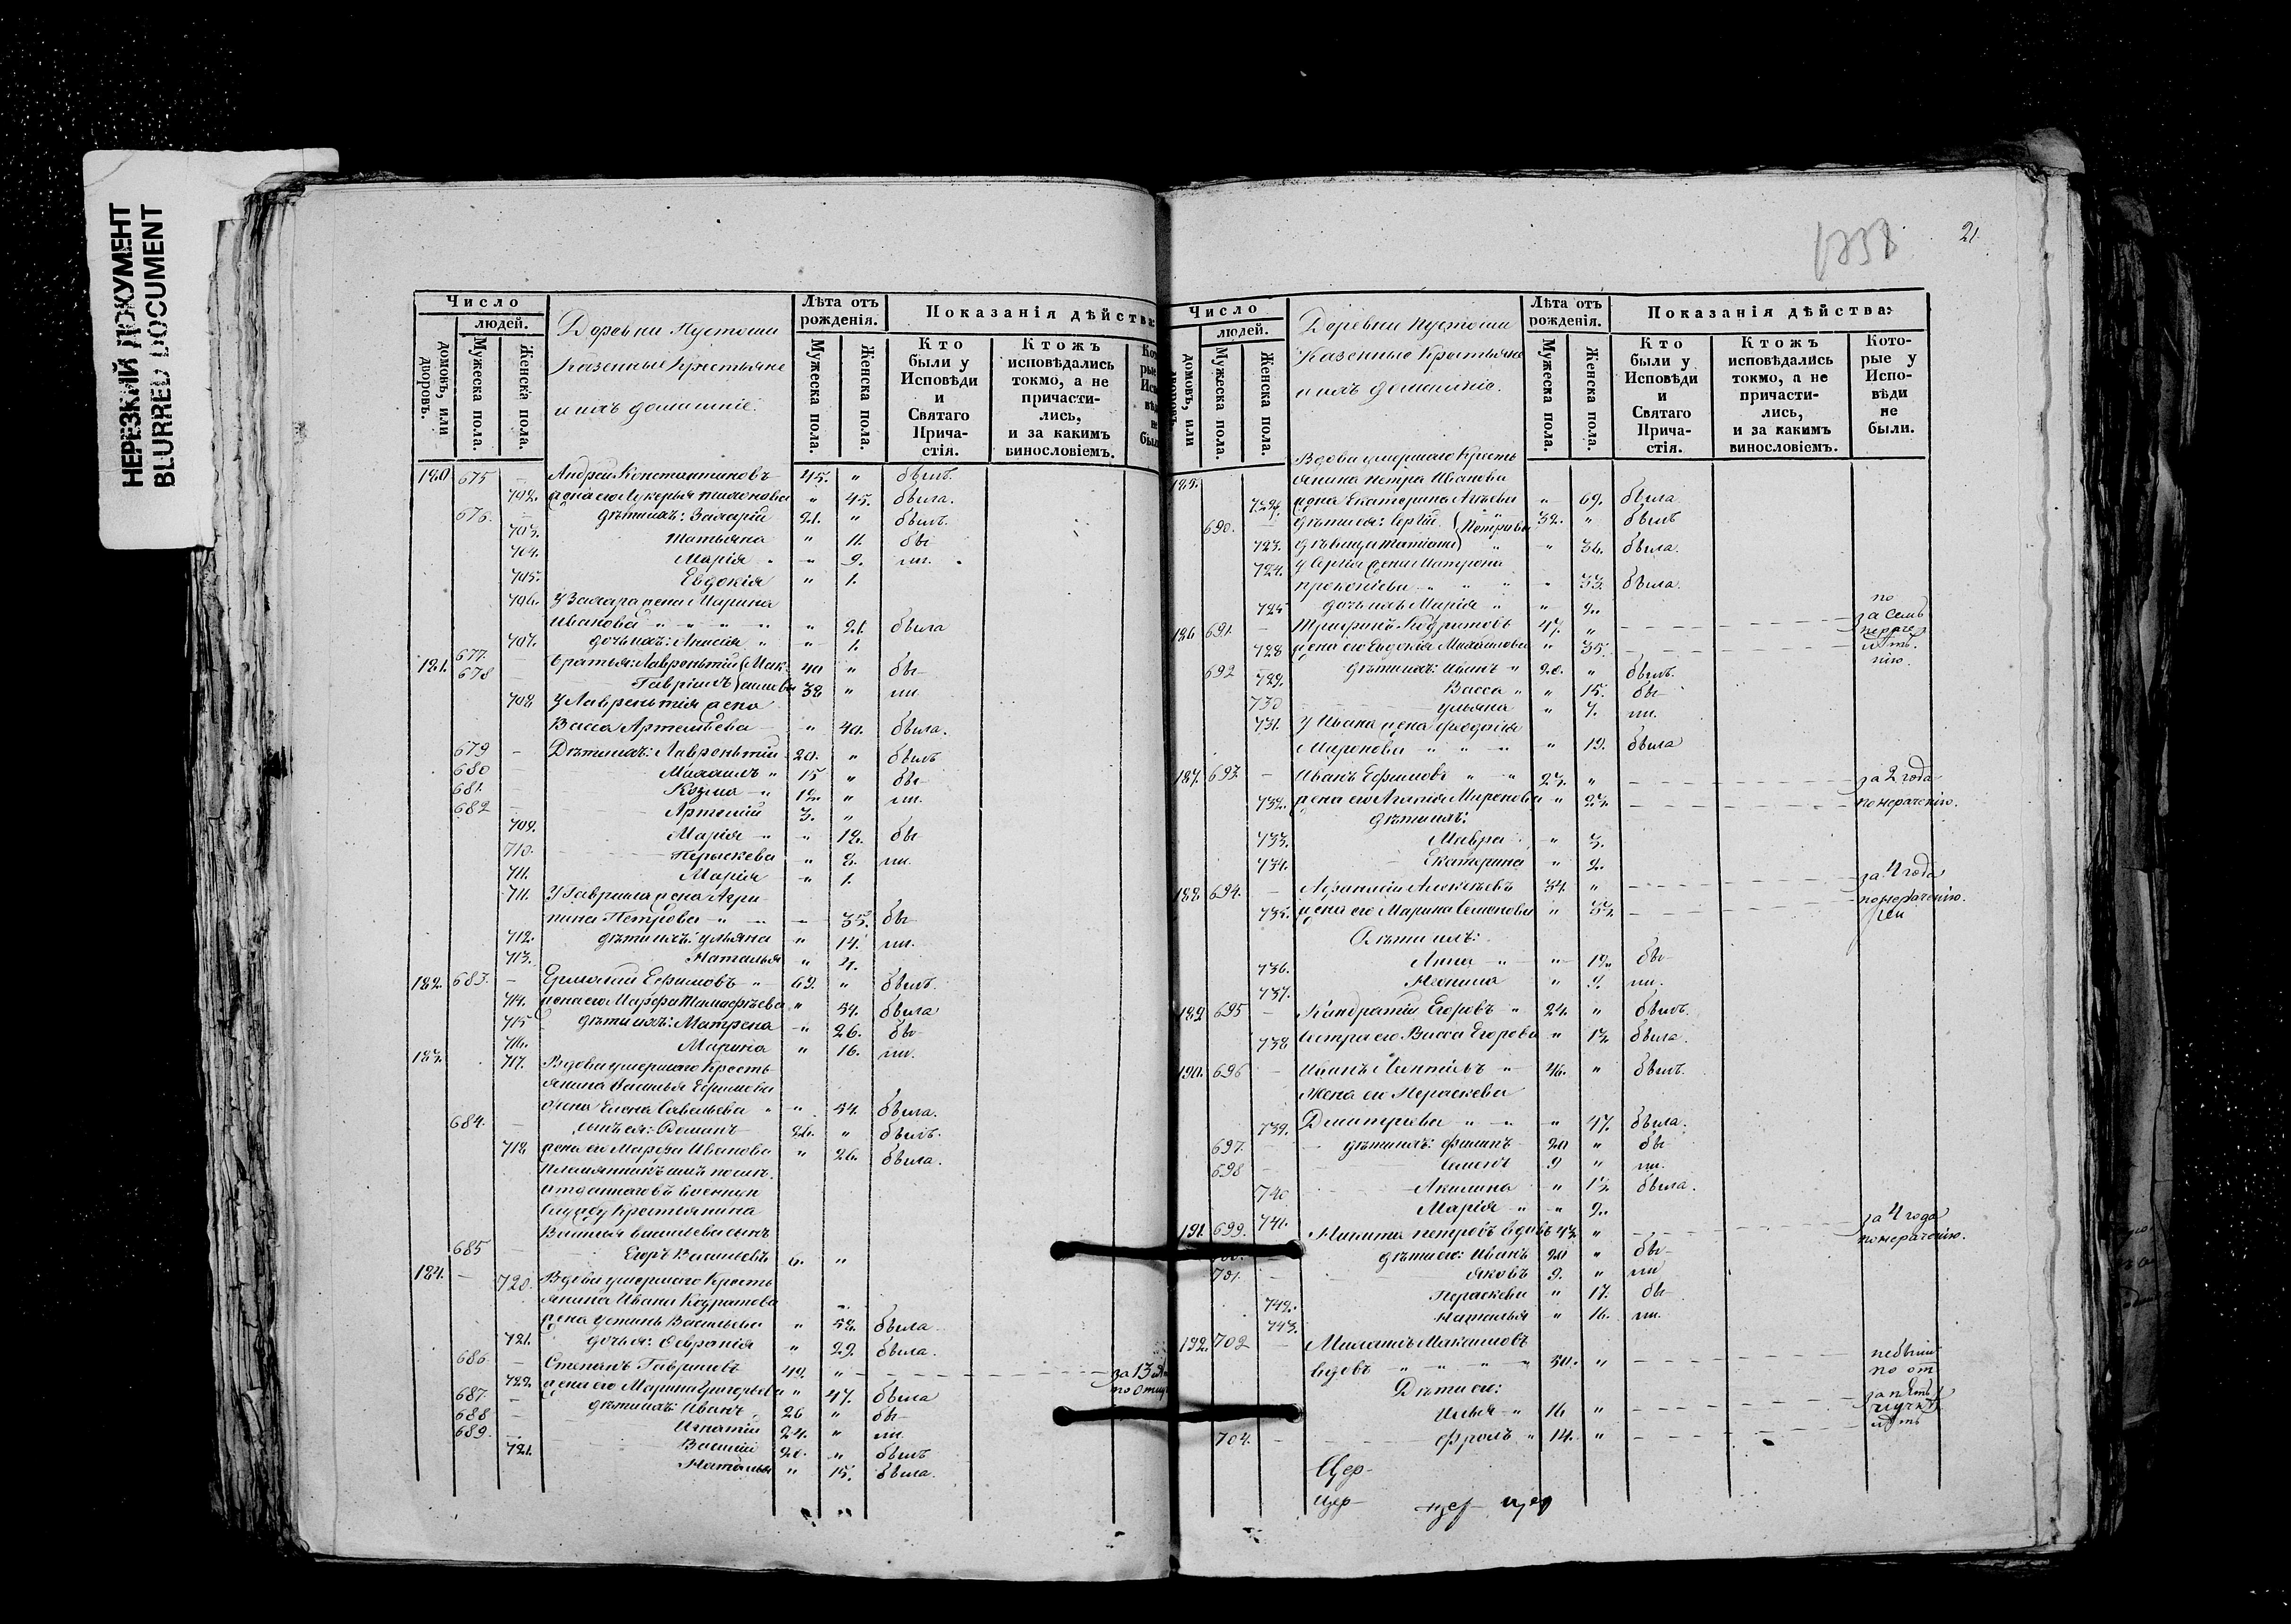 НЕРЕЗКИЙ ДОКУМЕНТ
BLURRED DOCUMENT
1338
21.
Число
людей.
домовъ, или дворовъ.
Мужеска пола.
Женска пола.
Деревни Пустоши
Казенные Крестьяне
и ихъ домашніе.
Лѣта отъ рожденія.
Мужеска пола.
Женска пола.
Показанія дѣйства:
Кто были у Исповѣди и Святаго Причастія.
Ктожъ исповѣдались токмо, а не причастились, и за какимъ винословіемъ.
180 675 — Андрей Константиновъ 45. " былъ.
702. жена его Лукерья " 45. была.
676. — дѣти ихъ: Захарій 21. " былъ.
703. Татьяна " 11. бы
704. Марія " 9. ли.
705. Евдокія " 1.
706. У Захара жена Марина
Иванова " 21. была
707. дочь ихъ: Анисія " 1.
181. 677. братья: Лаврентій 40 " бы
678 Гавріилъ 38 " ли
708 У Лаврентія жена
Васса Артемьева " 40. была.
679 — Дѣти ихъ: Лаврентій 20. " былъ
680 Михаилъ " 15 " бы
681. Козма " 12 " ли.
682 Артемій 3. "
709. Марія " 12. бы
710. Параскева " 8. ли.
711. Марія " 1.
711. У Гавриила жена Агри
пина Петрова " 35. бы
712. дѣти ихъ: Ульяна " 14. ли.
713. Наталья " 4.
182. 683. — Ермолай Ефимовъ 69. " былъ.
714. жена его Марфа " 54. была
715 дѣти ихъ: Матрена " 26. бы
716. Марина " 16. ли.
183. 717. Вдова умершаго Кресть
янина Василья Ефимова
жена Елена Савельева " 54. была.
684. — сынъ ея: Романъ 26. " былъ.
718 жена его Марфа Иванова " 26. была.
отданнаго въ военную
службу Крестьянина
685 — Егоръ Васильевъ 6. "
184. — 720. Вдова умершаго Кресть
янина Ивана Кодратова
жена Устинья Васильева " 52. была
721. дочь ея: Февронія " 29. была.
686. — Степанъ Гавриловъ 49. " за 13
722. жена его Марина Григорьева " 47. была
687. — дѣти ихъ: Иванъ 26 " бы
688 — Игнатій 24. " ли
689. — Василій 20. " былъ
721. Наталья " 15. была.
Число
людей.
домовъ, или дворовъ.
Мужеска пола.
Женска пола.
Деревни Пустоши
Казенные Крестьяне
и ихъ домашніе.
Лѣта отъ рожденія.
Мужеска пола.
Женска пола.
Показанія дѣйства:
Кто были у Исповѣди и Святаго Причастія.
Ктожъ исповѣдались токмо, а не причастились, и за какимъ винословіемъ.
Которые у Исповѣди не были.
185. Вдова умершаго Кресть
янина Петра Иванова
жена Екатерина " 69. была
690. — дѣти ея: Сергій Петровы 32. " былъ
723. дѣвица Татіана " 36. была.
724. У Сергія жена Матрона
Прокопіева " 33. была.
725 дочь ихъ Марія " 2.
186 691. — Трифонъ Кодратовъ 47. " за семь
728 жена его Евдокія Михайлова " 35. лѣтъ.
692 дѣти ихъ: Иванъ 20. " былъ.
729. Васса " 15. бы
730 Ульяна " 7. ли.
731. У Ивана жена Феодосія
Миронова " 19. была
187. 693. — Иванъ Ефимовъ 27. " за 2 года
732. жена его Агапія Миронова " 27. по нераченію.
дѣти ихъ:
733. Мавра " 3.
734. Екатерина " 2.
188 694. — Афанасій Алексѣевъ 34. " за 4 года
735. жена его Марина Семенова " 37. по нераченію.
Дѣти ихъ:
736. Анна " 12. бы
737. " 9. ли.
189 695 — Кандратій Егоровъ 24. " былъ.
738 Сестра его Васса Егорова " 17. была.
190. 696 — Иванъ 46. " былъ.
Жена его Параскева
739. Димитріева " 47. была.
697. дѣти ихъ: Филипъ 20 " бы
698 Семенъ 9 " ли.
740 Акилина " 17. была.
741. Марія " 2.
191. 699. Никита Петровъ вдовъ 43. " за 4 года
по нераченію.
дѣти его: Иванъ 20 " бы
701. — Яковъ 9. " ли
742. Параскева " 17. бы
743. Наталья " 16. ли.
192. 702 — Михаилъ Максимовъ
вдовъ 50. "
Дѣти его:
Илья 16 "
704. — Фролъ 14. "
Цер-
цер-
цер-